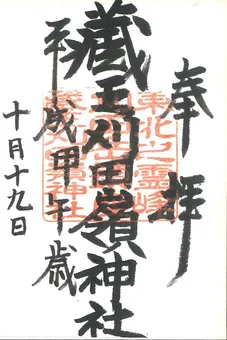 奉拝
蔵王刈田嶺神社
東北之霊峰
刈田嶺神社
平成甲午歳
十月十九日